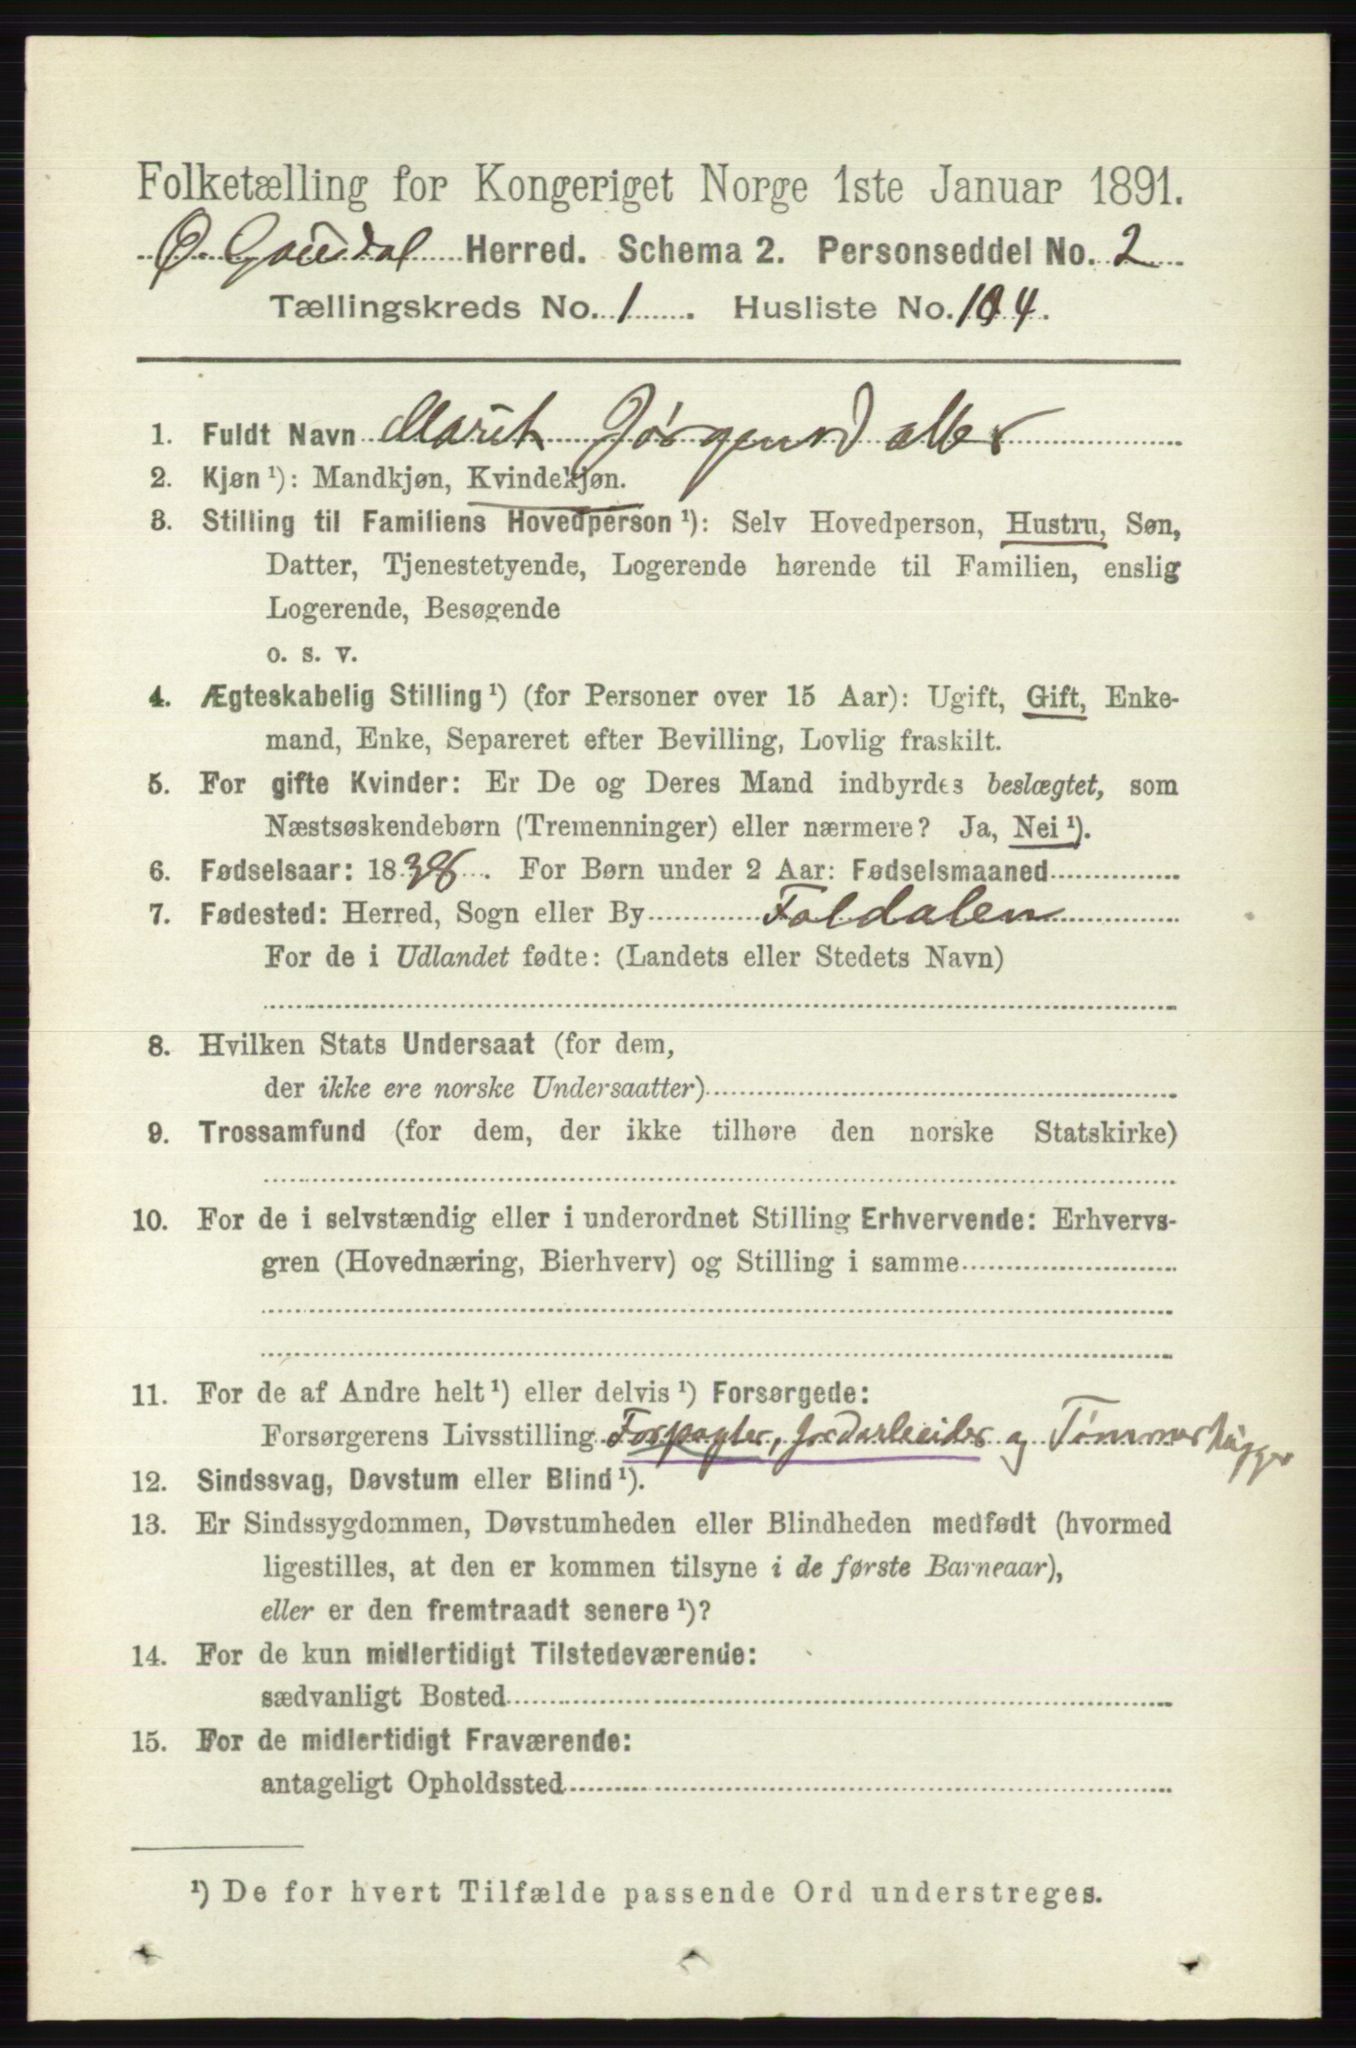 Folketælling for Kongeriget Norge 1ste Januar 1891.
Ø. Gausdal Herred. Schema 2. Personseddel No. 2
Tællingskreds No. 1. Husliste No. 104.
1. Fuldt Navn Marit Jørgensdatter
2. Kjøn ¹): Mandkjøn, Kvindekjøn.
3. Stilling til Familiens Hovedperson ¹): Selv Hovedperson, Hustru, Søn,
Datter, Tjenestetyende, Logerende hørende til Familien, enslig
Logerende, Besøgende
o. s. v.
4. Ægteskabelig Stilling ¹) (for Personer over 15 Aar): Ugift, Gift, Enke-
mand, Enke, Separeret efter Bevilling, Lovlig fraskilt.
5. For gifte Kvinder: Er De og Deres Mand indbyrdes beslægtet, som
Næstsøskendebørn (Tremenninger) eller nærmere? Ja, Nei ¹).
6. Fødselsaar: 1838. For Børn under 2 Aar: Fødselsmaaned
7. Fødested: Herred, Sogn eller By Foldalen
For de i Udlandet fødte: (Landets eller Stedets Navn)
8. Hvilken Stats Undersaat (for dem,
der ikke ere norske Undersaatter)
9. Trossamfund (for dem, der ikke tilhøre den norske Statskirke)
10. For de i selvstændig eller i underordnet Stilling Erhvervende: Erhvervs-
gren (Hovednæring, Bierhverv) og Stilling i samme
11. For de af Andre helt ¹) eller delvis ¹) Forsørgede:
Forsørgerens Livsstilling Forpagter, Jordarbeider og Tømmerhugger
12. Sindssvag, Døvstum eller Blind ¹).
13. Er Sindssygdommen, Døvstumheden eller Blindheden medfødt (hvormed
ligestilles, at den er kommen tilsyne i de første Barneaar),
eller er den fremtraadt senere ¹)?
14. For de kun midlertidigt Tilstedeværende:
sædvanligt Bosted
15. For de midlertidigt Fraværende:
antageligt Opholdssted
¹) De for hvert Tilfælde passende Ord understreges.